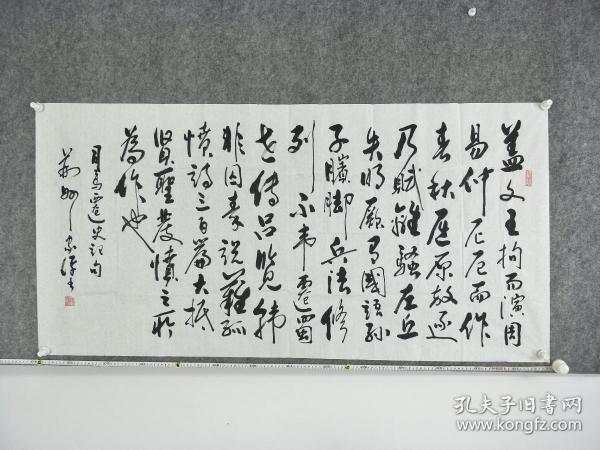 蓋文王拘而演周
易仲尼厄而作
春秋屈原放逐
乃賦離騷左丘
失明厥有國語孫
子臏腳兵法修
列不韋遷蜀
世傳呂覽韓
非囚秦說難孤
憤詩三百篇大抵
賢聖發憤之所
為作也
司馬遷史記句
荊州
孔夫子旧书网
www.kongfz.com